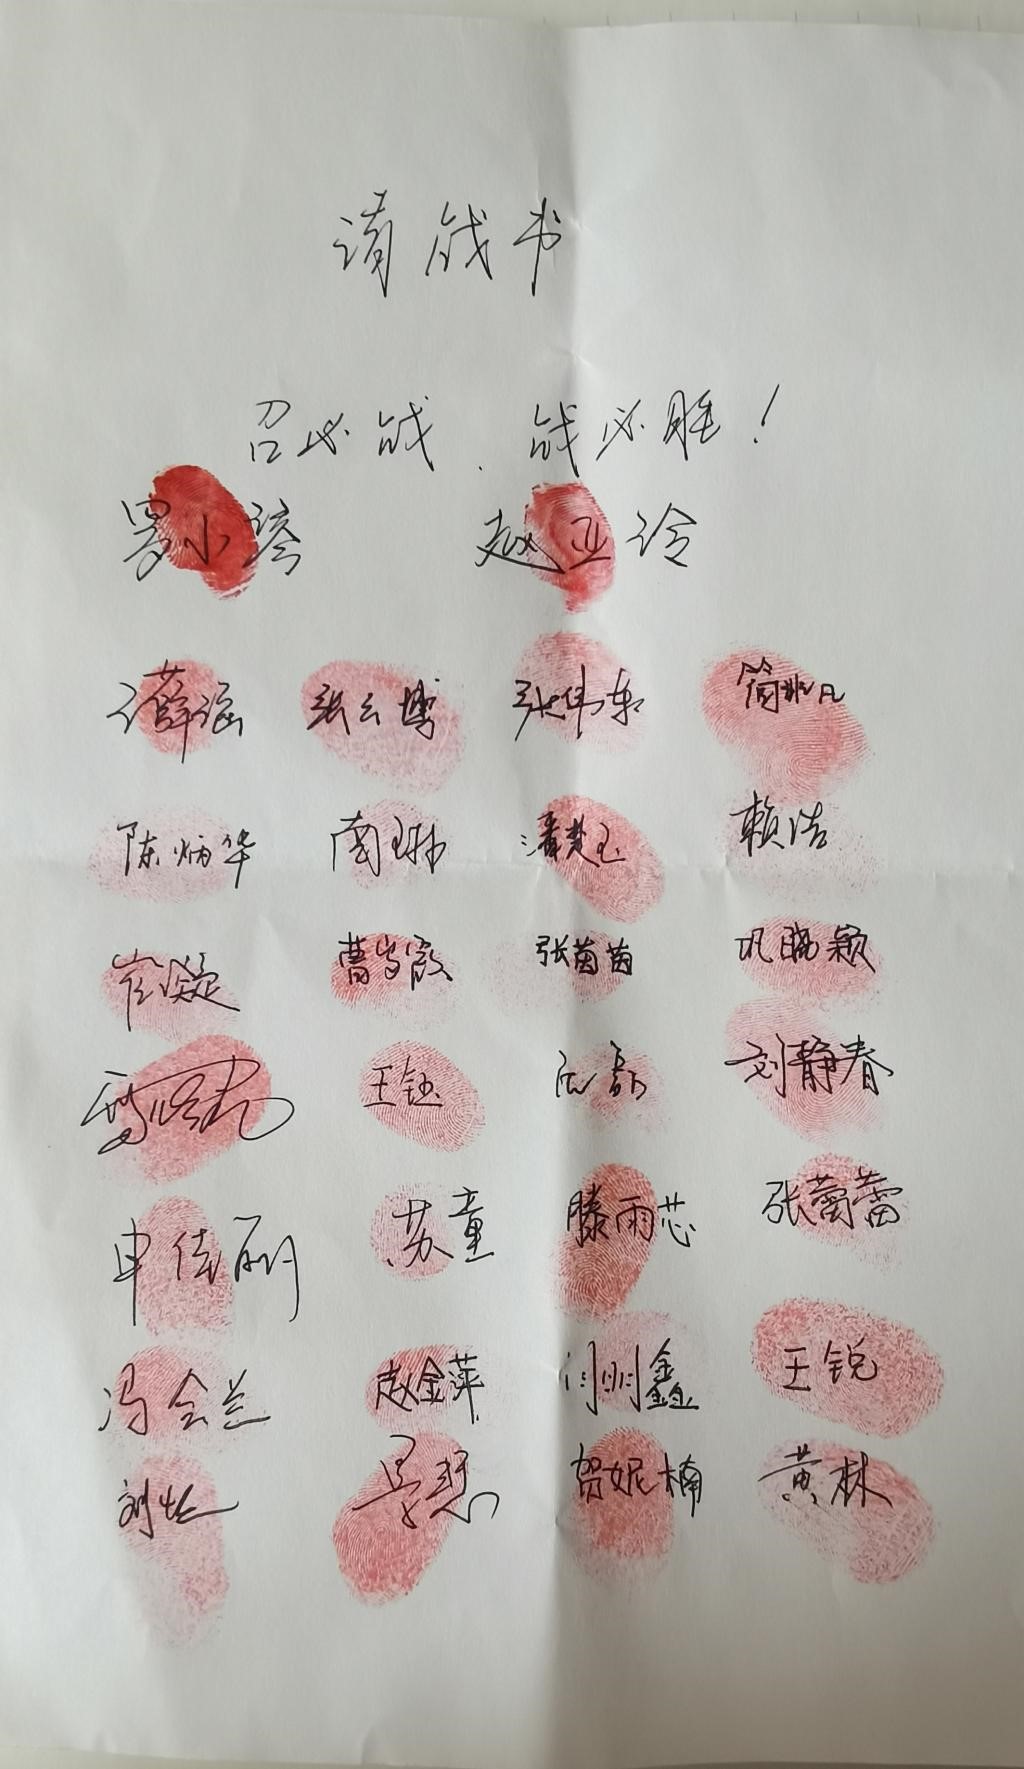 请战书
召必战、战必胜!
罗小 赵亚冷
薛涵 张云博 张伟东 简
陈炳华 南琳 潘楚玉 赖洁
崔凝 曹 霞 张茵茵 巩晓颖
王钰 阮磊 刘静春
申佳丽 苏童 滕雨芯 张蕾蕾
冯会兰 赵金萍 闫刚鑫 王锐
刘 贺妮楠 黄林